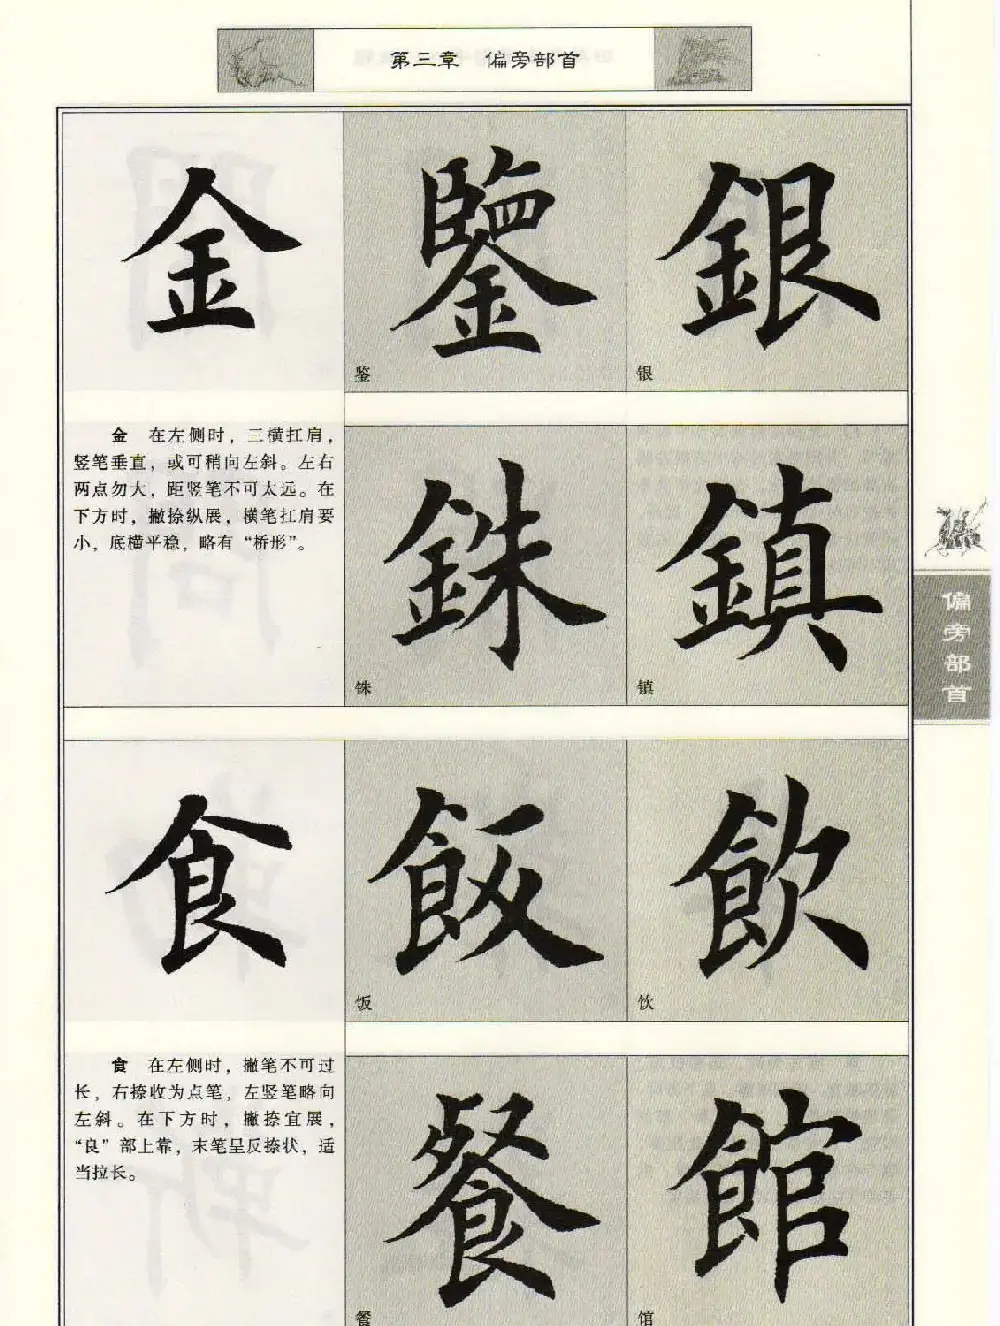 第三章 偏旁部首
金
鑒
銀
鉴
银
金 在左侧时，三横扛肩，
竖笔垂直，或可稍向左斜。左右
两点勿大，距竖笔不可太远。在
下方时，撇捺纵展，横笔扛肩要
小，底横平稳，略有“桥形”。
銖
鎮
铢
镇
偏旁部首
食
飯
飲
饭
饮
食 在左侧时，撇笔不可过
长，右捺收为点笔，左竖笔略向
左斜。在下方时，撇捺宜展，
“良”部上靠，末笔呈反捺状，适
当拉长。
餐
館
餐
馆